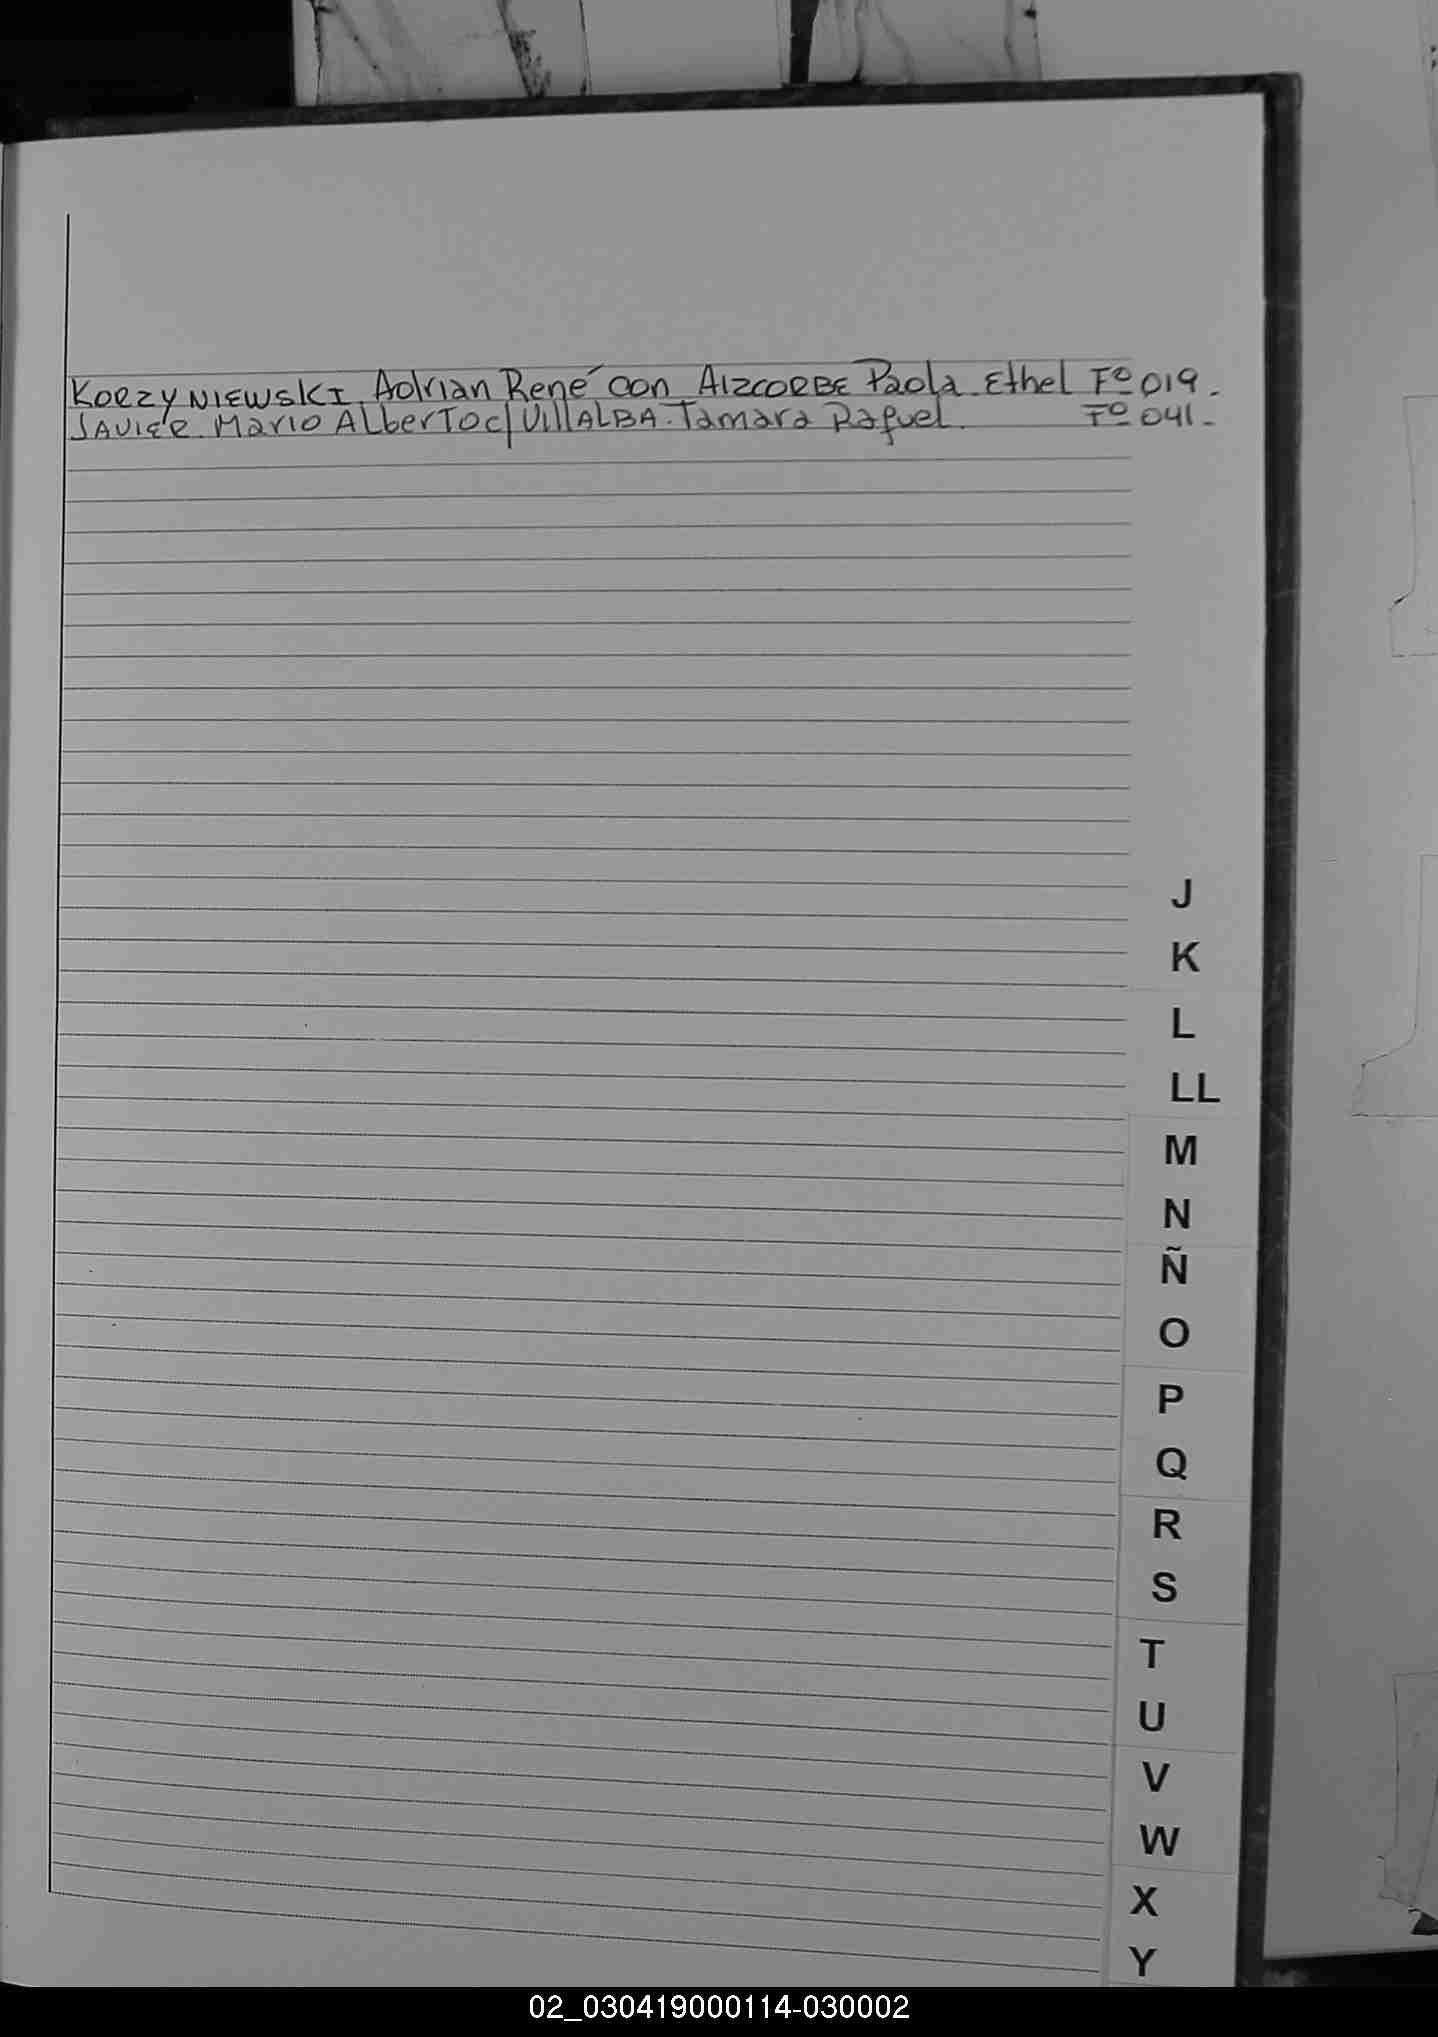 KORZYNIEWSKI. Adrian René con AIZCORBE Paola. Ethel Fº 019.
JAVIER. Mario Alberto c/ VILLALBA. Tamara Raquel. Fº 041.
J
K
L
LL
M
N
Ñ
O
P
Q
R
S
T
U
V
W
X
Y
02_030419000114-030002